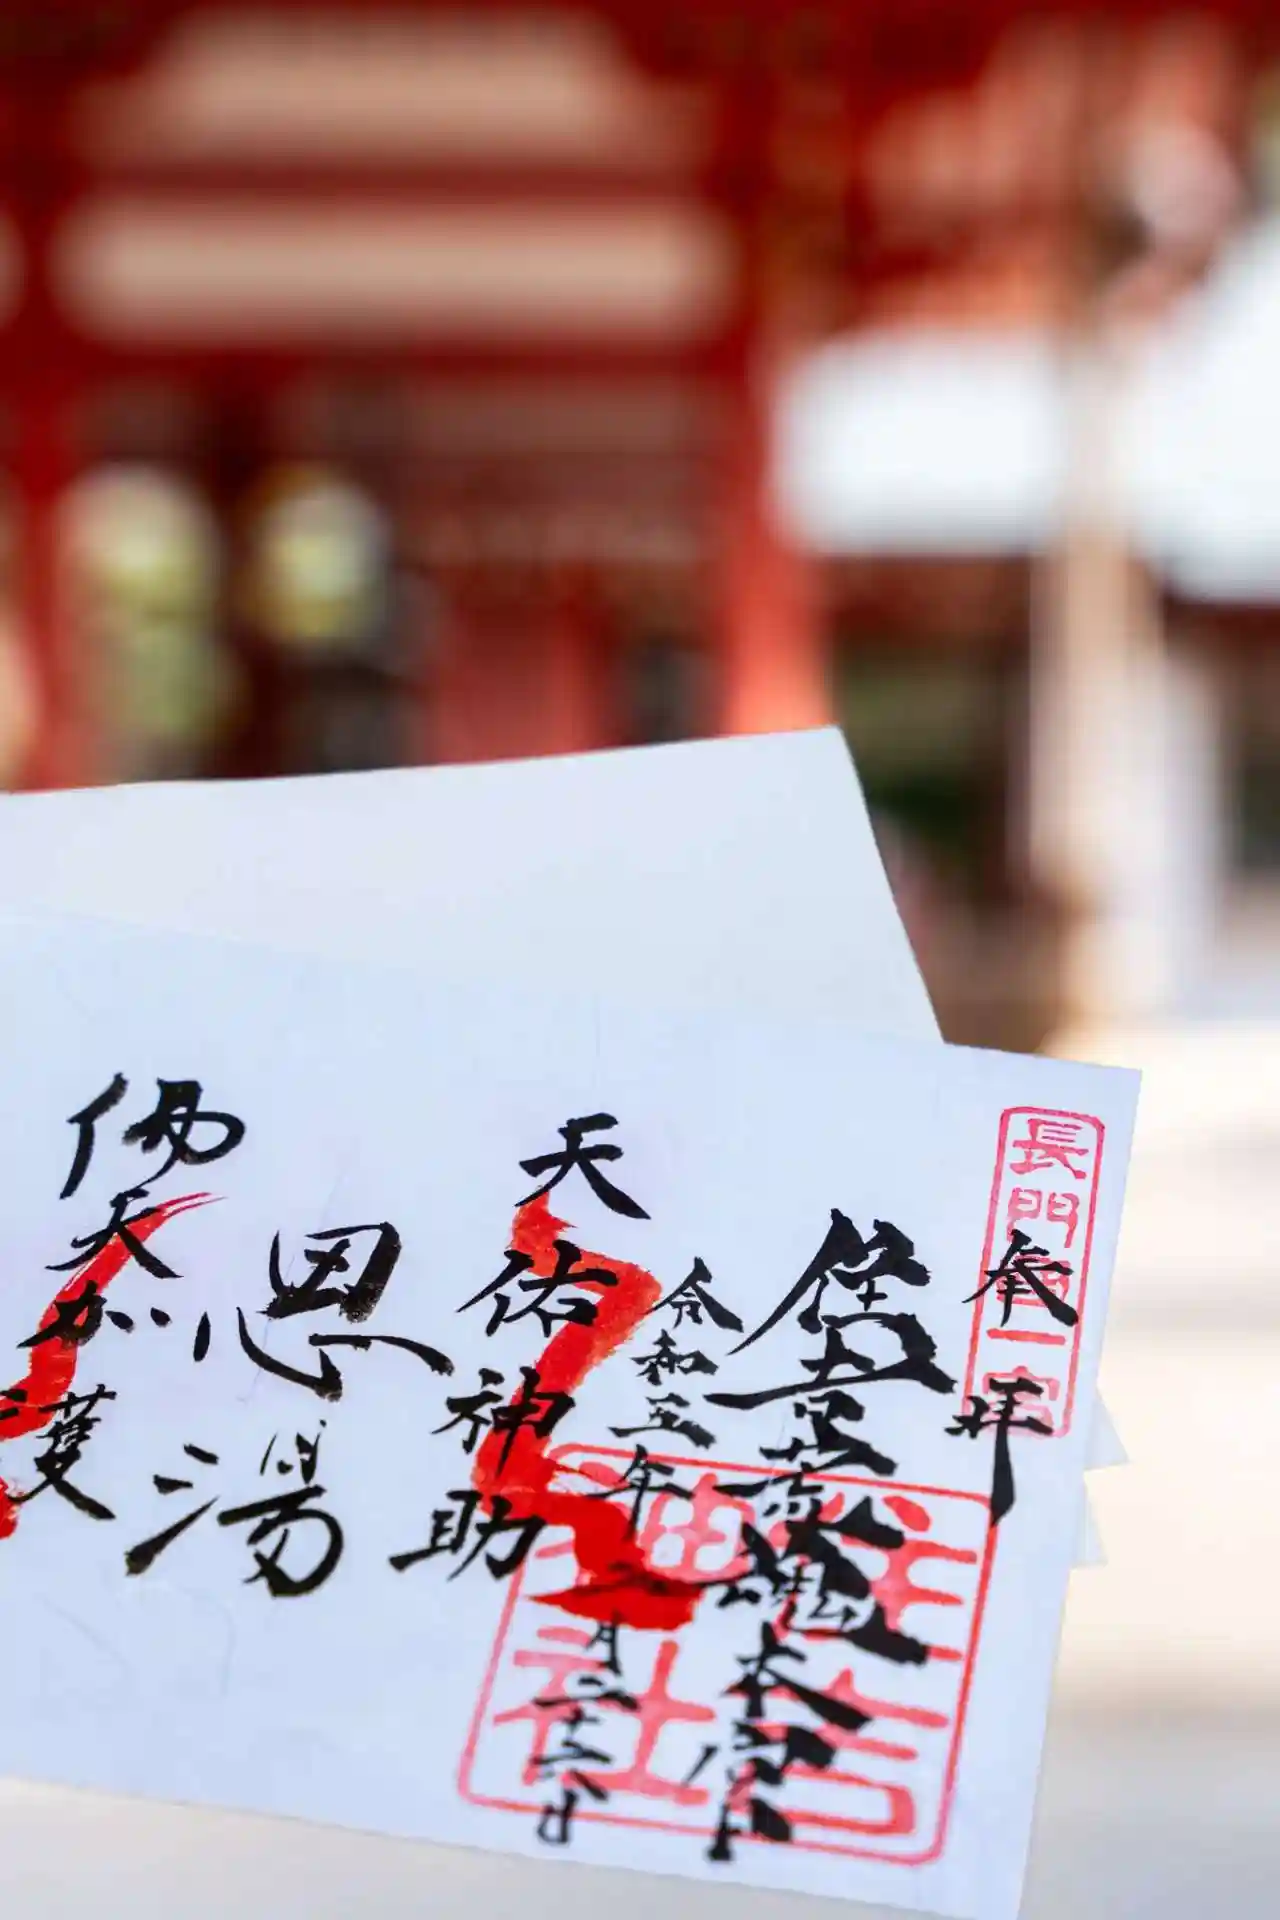 長門國一宮
奉拝
住吉荒魂本宮
住吉神社
令和五年
二月二十六日
天佑神助
恩湯
佛天加護